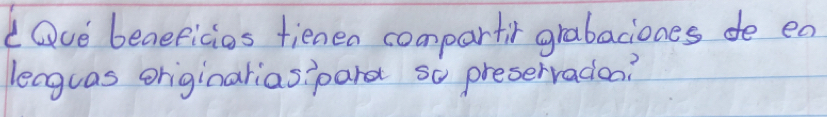 ¿Qué beneficios tienen compartir grabaciones de en
lenguas originarias?para su preservacion?